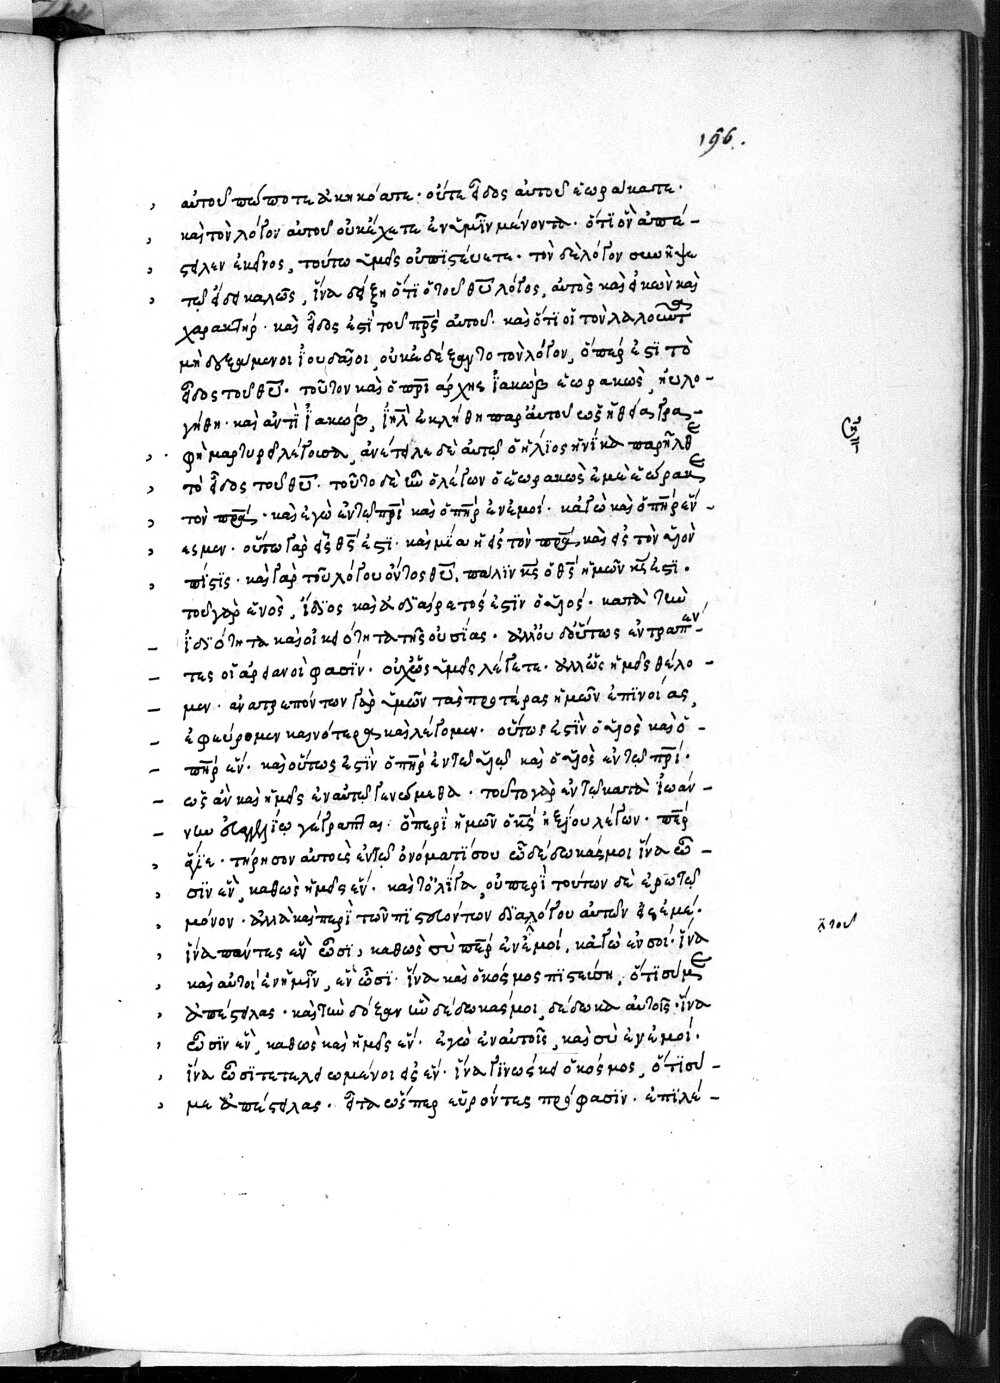 196.
αὐτοῦ πώποτε ἀκηκόατε· οὔτε εἶδος αὐτοῦ ἑωράκατε·
καὶ τὸν λόγον αὐτοῦ οὐκ ἔχετε ἐν ὑμῖν μένοντα· ὅτι ὃν ἀπέ-
στειλεν ἐκεῖνος, τούτω ὑμεῖς οὐ πιστεύετε· τὸν δὲ λόγον συνῆψε
τῷ εἴδει καλῶς, ἵνα δείξη ὅτι ὁ τοῦ θῡ λόγος, αὐτὸς καὶ εἰκὼν καὶ
χαρακτήρ· καὶ εἶδος ἐστὶ τοῦ πρ̄ς αὐτοῦ· καὶ ὅτι οἱ τὸν λαλοῦντα
μὴ δεξάμενοι ἰουδαῖοι, οὐκ ἐδέξαντο τὸν λόγον, ὅπερ ἐστὶ τὸ
εἶδος τοῦ θῡ· τοῦτον καὶ ὁ πρι άρχης ἰακὼβ ἑωρακὼς, ηὐλο-
γήθη· καὶ ἀντὶ ἰακὼβ, ιη̄λ ἐκλήθη παρ' αὐτοῦ ὡς ἡ θεία γρα-
φὴ μαρτυρεῖ λέγουσα, ἀνέτειλε δὲ αὐτῷ ὁ ἥλιος ἡνίκα παρῆλθε
τὸ εἶδος τοῦ θῡ· τοῦτο δὲ ἦν ὁ λέγων ὁ ἑωρακὼς ἐμὲ ἑώρακε
τὸν πρ̄α· καὶ ἐγὼ ἐν τῷ πρ̄ὶ καὶ ὁ πη̄ρ ἐν ἐμοί· κἀγὼ καὶ ὁ πη̄ρ ἕν
ἐσμεν· οὕτω γὰρ εἷς θς̄ ἐστι· καὶ μία ἡ εἰς τὸν πρ̄α καὶ εἰς τὸν υἱὸν
πίστις· καὶ γὰρ τοῦ λόγου ὄντος θῡ, πάλιν κς̄ ὁ θς̄ ἡμῶν κς̄ ἐστι·
τοῦ γὰρ ἑνὸς, ἴδιος καὶ ἀδιαίρετός ἐστιν ὁ υἱός· κατὰ τὴν
ἰδιότητα καὶ οἰκειότητα τῆς οὐσίας· ἀλλ' οὐδ' οὕτως ἐντραπέν-
τες οἱ ἀρειανοί φασιν· οὐχ ὡς ὑμεῖς λέγετε· ἀλλ' ὡς ἡμεῖς θέλο-
μεν· ἀνατρεπόντων γὰρ ὑμῶν τὰς προτέρας ἡμῶν ἐπινοίας,
ἐφεύρομεν καινότερα καὶ λέγομεν· οὕτως ἐστὶν ὁ υἱὸς καὶ ὁ
πη̄ρ ἕν· καὶ οὕτως ἐστὶν ὁ πη̄ρ ἐν τῷ υἱῷ καὶ ὁ υἱὸς ἐν τῷ πρ̄ί·
ὡς ἂν καὶ ἡμεῖς ἐν αὐτῷ γενώμεθα· τοῦτο γὰρ ἐν τῷ κατὰ ἰωάν-
νην εὐαγγελίῳ γέγραπται· ὃ περὶ ἡμῶν ὁ κς̄ ἠξίου λέγων· πε̄ρ
ἅγιε· τήρησον αὐτοὺς ἐν τῷ ὀνόματί σου ᾧ δέδωκάς μοι ἵνα ὦ-
σιν ἓν, καθὼς ἡμεῖς ἕν· καὶ μετ' ὀλίγα, οὐ περὶ τούτων δὲ ἐρωτῶ
μόνον· ἀλλὰ καὶ περὶ τῶν πιστευόντων διὰ λόγου αὐτῶν εἰς ἐμέ·
λ τοῦ
ἵνα πάντες ἓν ὦσι, καθὼς σὺ πε̄ρ ἐν ἐμοί, κἀγὼ ἐν σοί· ἵνα
καὶ αὐτοὶ ἐν ἡμῖν, ἓν ὦσι· ἵνα καὶ ὁ κόσμος πιστεύση, ὅτι σύ με
ἀπέστειλας· καὶ τὴν δόξαν ἣν δέδωκάς μοι, δέδωκα αὐτοῖς· ἵνα
ὦσιν ἓν, καθὼς καὶ ἡμεῖς ἕν· ἐγὼ ἐν αὐτοῖς, καὶ σὺ ἐν ἐμοί·
ἵνα ὦσι τετελειωμένοι εἰς ἕν· ἵνα γινώσκει ὁ κόσμος, ὅτι σύ
με ἀπέστειλας· εἶτα ὥσπερ εὑρόντες πρόφασιν· ἐπιλέ-